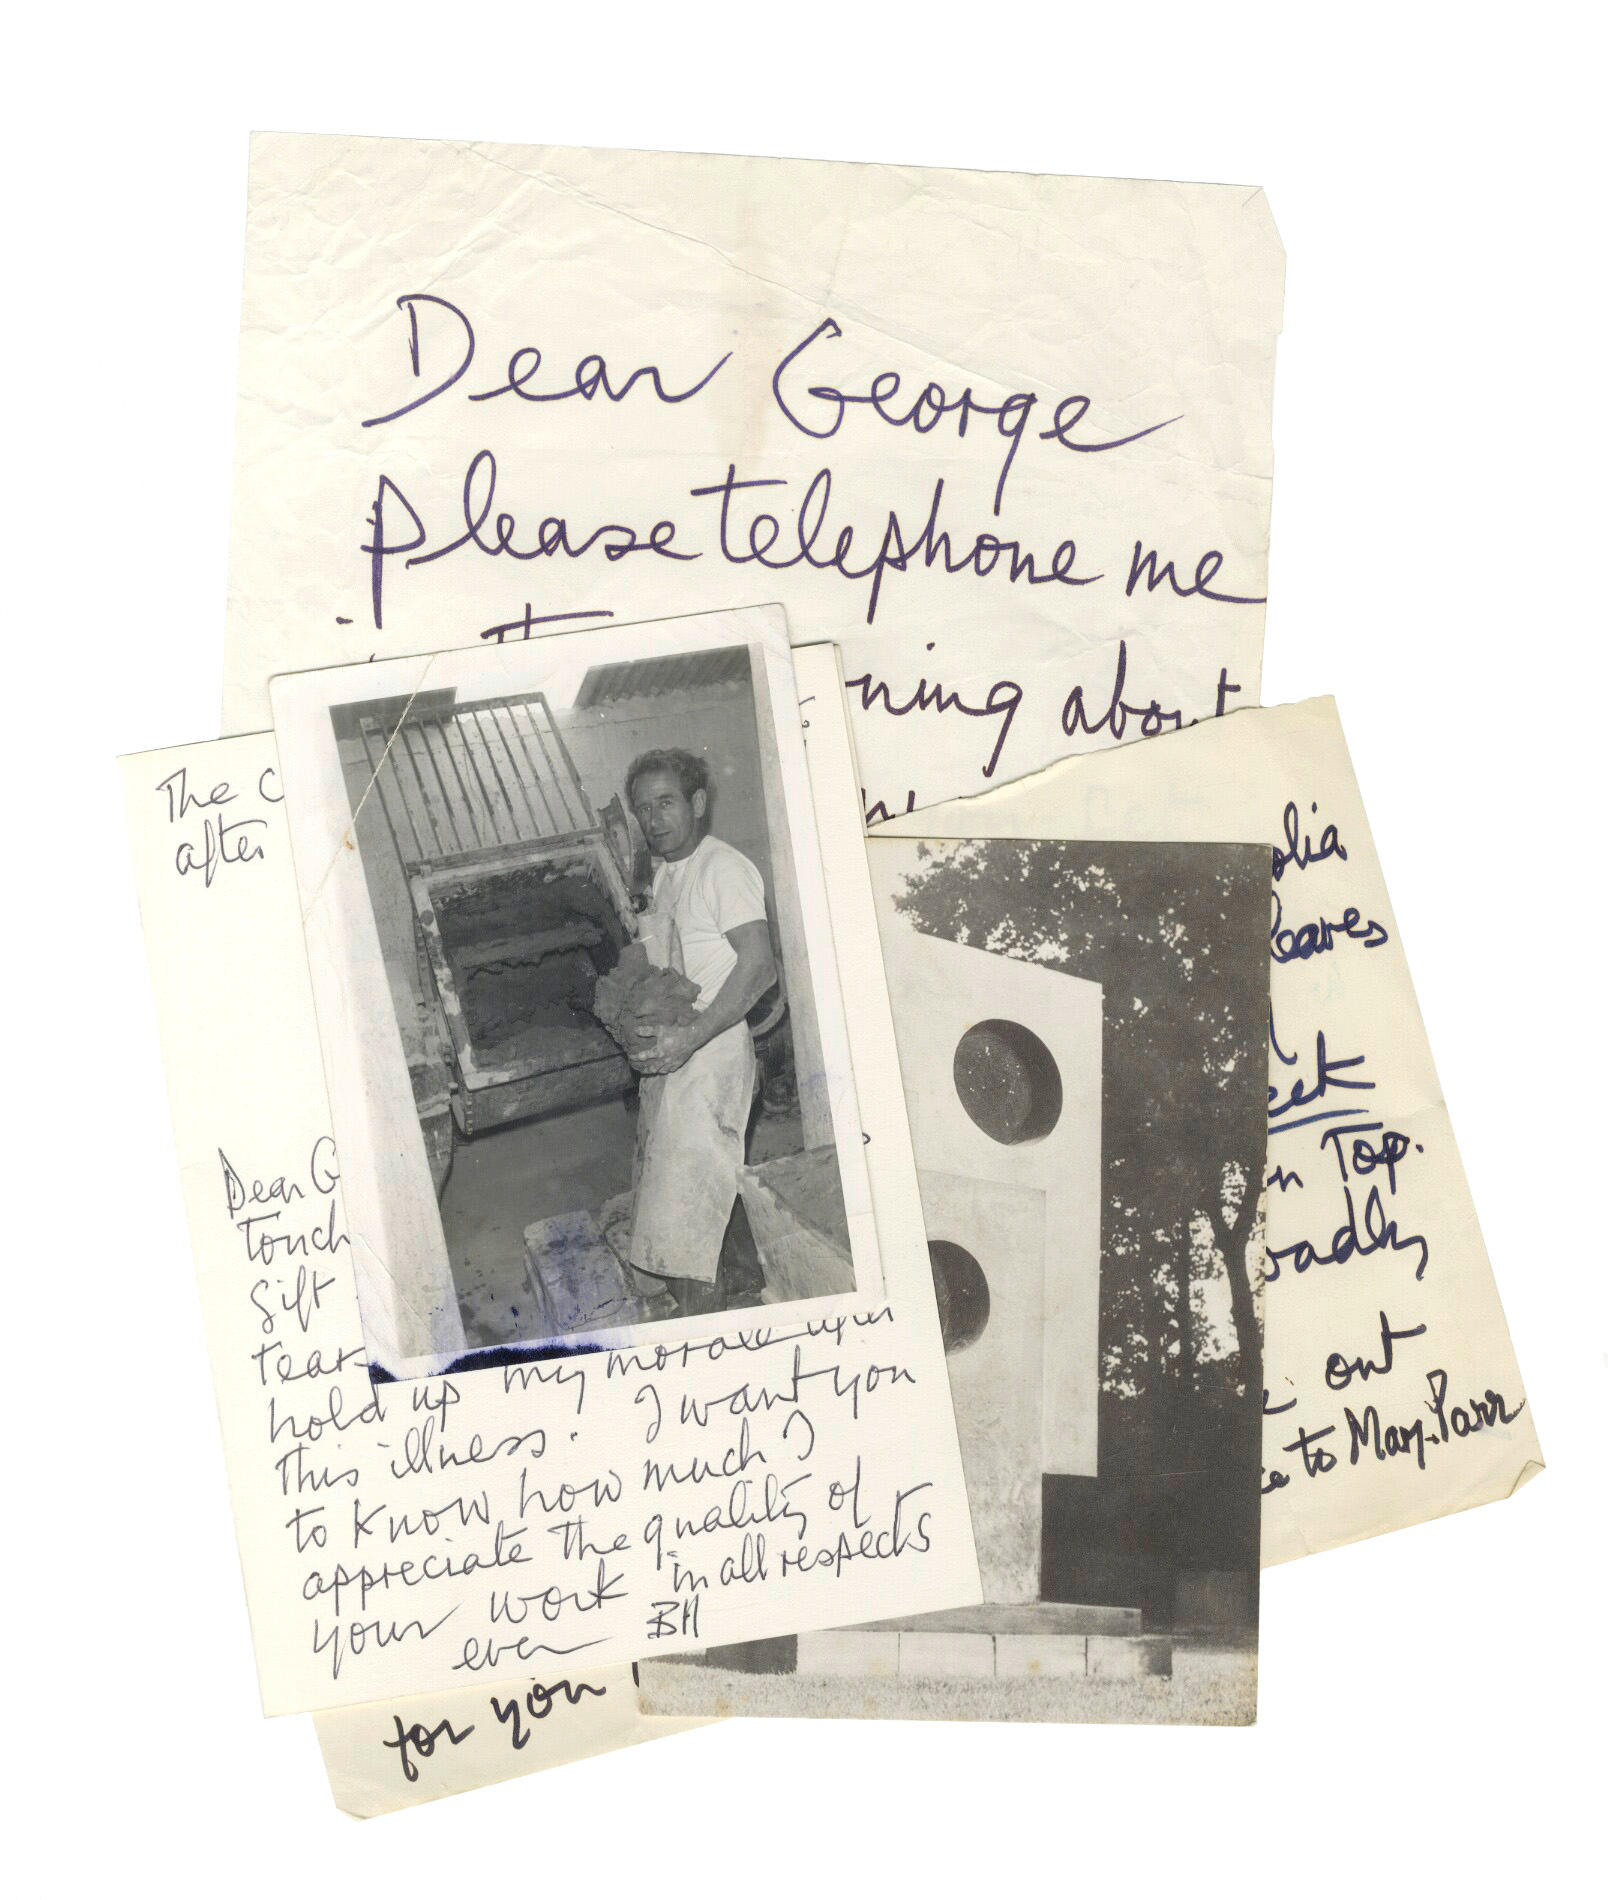 Dear George
please telephone me
ning about
The
after
Dear G
touch
gift
tear
hold up my morale after
this illness. I want you
to know how much I
appreciate the quality of
your work in all respects
ever BH
olia
leaves
eek
n Top.
oadly
out
to Mary. Parr
for you